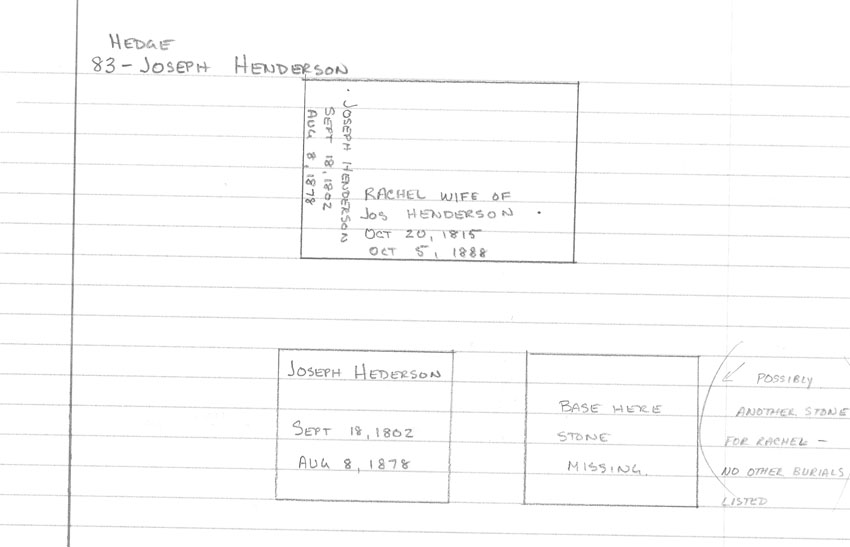 HEDGE
83 - JOSEPH HENDERSON
JOSEPH HENDERSON
SEPT 18, 1802
AUG 8, 1878
RACHEL WIFE OF
JOS HENDERSON
OCT 20, 1815
OCT 5, 1888
JOSEPH HEDERSON
SEPT 18, 1802
AUG 8, 1878
BASE HERE
STONE
MISSING.
POSSIBLY
ANOTHER STONE
FOR RACHEL -
NO OTHER BURIALS
LISTED